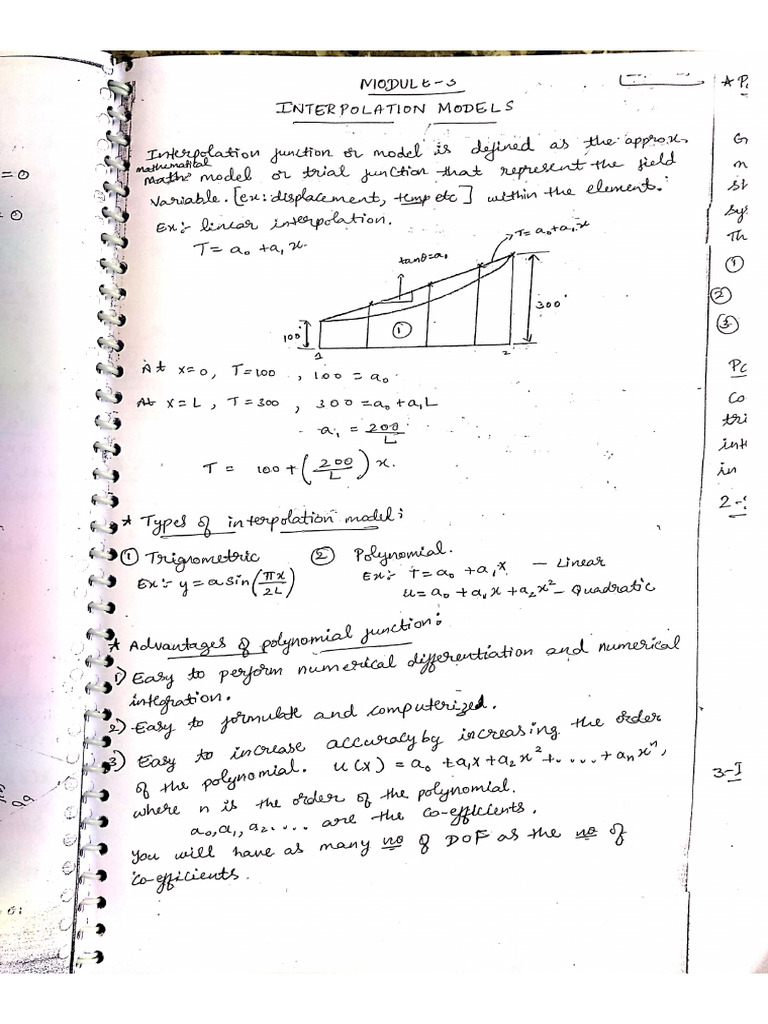 MODULE-3
INTERPOLATION MODELS
Interpolation function or model is defined as the approx.
mathematical
model or trial function that represent the field
variable. [ex: displacement, temp etc] within the element.
Ex:- linear interpolation.
T = a₀ + a₁x.
T = a₀ + a₁x
tanθ = a₁
100°
300°
①
1
2
At x=0, T=100 , 100 = a₀
At x=L, T=300 , 300 = a₀ + a₁L
a₁ = 200/L
T = 100 + (200/L) x.
* Types of interpolation model:
① Trigrometric ② Polynomial.
Ex:- y = a sin(πx/2L) Ex:- T = a₀ + a₁x — Linear
u = a₀ + a₁x + a₂x² - Quadratic
* Advantages of polynomial function:
1) Easy to perform numerical differentiation and numerical
integration.
2) Easy to formulate and computerized.
3) Easy to increase accuracy by increasing the order
of the polynomial. u(x) = a₀ + a₁x + a₂x² + ..... + aₙxⁿ,
where n is the order of the polynomial.
a₀, a₁, a₂.... are the co-efficients.
You will have as many no of DOF as the no of
co-efficients.
= 0
= 0
①
②
③
Co
tri
in